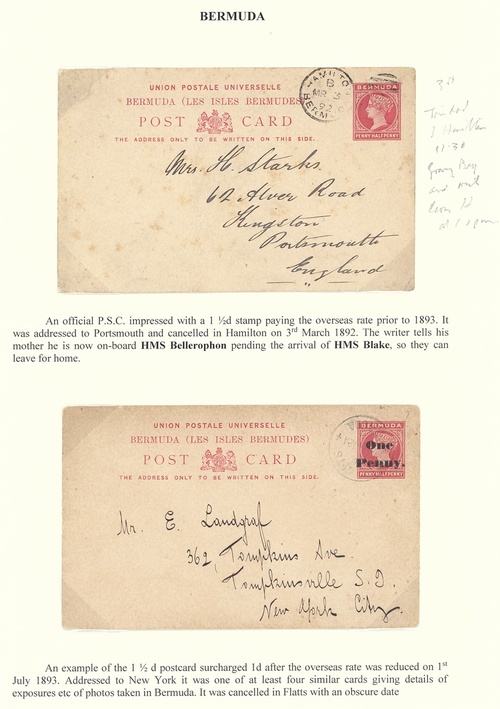 BERMUDA
UNION POSTALE UNIVERSELLE
BERMUDA (LES ISLES BERMUDES)
POST CARD
THE ADDRESS ONLY TO BE WRITTEN ON THIS SIDE.
HAMILTON
B
MR 3
92
BERM
BERMUDA
PENNY HALFPENNY
3rd
Trinidad
Hamilton
11.30
Grassy Bay
and
at 1 pm
Mrs. H. Starks
62 Alver Road
Kingston
Portsmouth
England
An official P.S.C. impressed with a 1 ½d stamp paying the overseas rate prior to 1893. It
was addressed to Portsmouth and cancelled in Hamilton on 3rd March 1892. The writer tells his
mother he is now on-board HMS Bellerophon pending the arrival of HMS Blake, so they can
leave for home.
UNION POSTALE UNIVERSELLE
BERMUDA (LES ISLES BERMUDES)
POST CARD
THE ADDRESS ONLY TO BE WRITTEN ON THIS SIDE.
BERMUDA
One
Penny.
PENNY HALFPENNY
Mr. E. Landgraf
362, Tompkins Ave.
Tompkinsville S. I.
New York City.
An example of the 1 ½ d postcard surcharged 1d after the overseas rate was reduced on 1st
July 1893. Addressed to New York it was one of at least four similar cards giving details of
exposures etc of photos taken in Bermuda. It was cancelled in Flatts with an obscure date